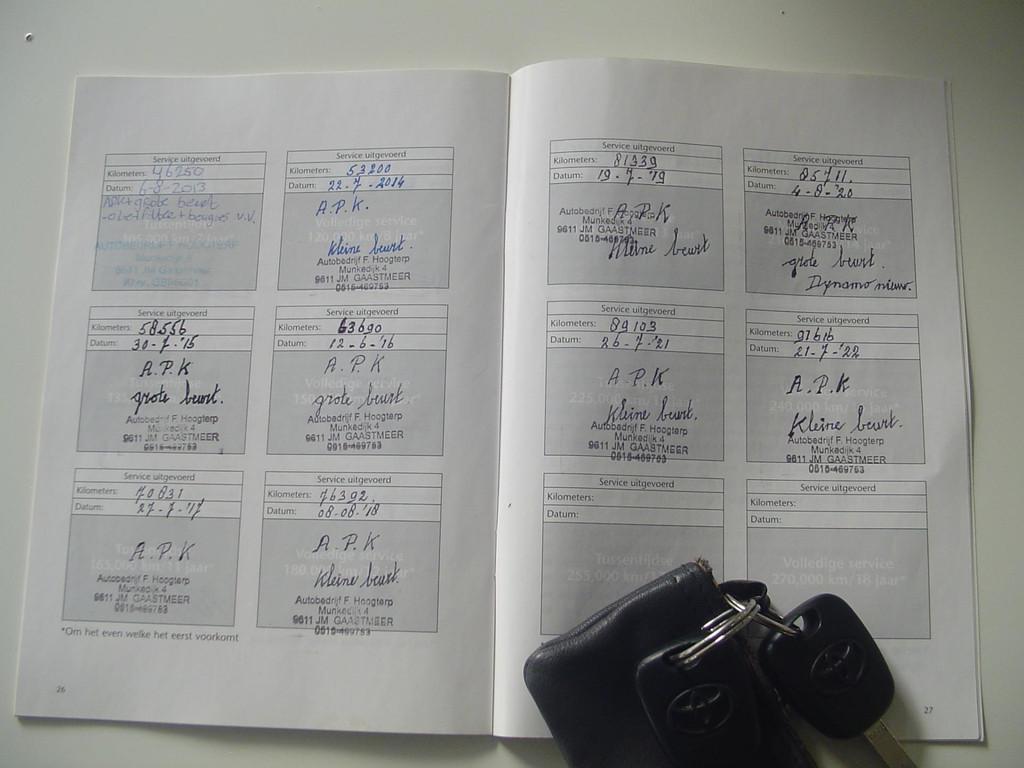 Service uitgevoerd
Kilometers: 46250
Datum: 6-8-2013
APK+grote beurt
V.V.
AUTOBEDRIJF F. HOOGTERP
Munkedijk 4
8611 JM Gaastmeer
Service uitgevoerd
Kilometers: 53200
Datum: 22-7-2014
A.P.K.
Volledige service
Kleine beurt.
Autobedrijf F. Hoogterp
Munkedijk 4
9611 JM GAASTMEER
0515-469753
Service uitgevoerd
Kilometers: 58556
Datum: 30-7-'15
A.P.K
Tussentijdse
grote beurt.
Autobedrijf F. Hoogterp
Munkedijk 4
9611 JM GAASTMEER
0515-469753
Service uitgevoerd
Kilometers: 63690
Datum: 12-6-'16
A.P.K
Volledige service
grote beurt
Autobedrijf F. Hoogterp
Munkedijk 4
9611 JM GAASTMEER
0515-469753
Service uitgevoerd
Kilometers: 70831
Datum: 27-7-'17
A.P.K
165,000 km/11 jaar*
Autobedrijf F. Hoogterp
Munkedijk 4
9611 JM GAASTMEER
0515-469753
Service uitgevoerd
Kilometers: 76392
Datum: 08-08-'18
A.P.K
Volledige service
Kleine beurt.
Autobedrijf F. Hoogterp
Munkedijk 4
9611 JM GAASTMEER
0515-469753
*Om het even welke het eerst voorkomt
26
Service uitgevoerd
Kilometers: 81339
Datum: 19-7-'19
A.P.K
Autobedrijf F. Hoogterp
Munkedijk 4
9611 JM GAASTMEER
0515-469753
Kleine beurt
Service uitgevoerd
Kilometers: 85711.
Datum: 4-8-'20
A.P.K
Autobedrijf F. Hoogterp
Munkedijk 4
9611 JM GAASTMEER
0515-469753
grote beurt.
Dynamo nieuw.
Service uitgevoerd
Kilometers: 89103
Datum: 26-7-'21
A.P.K
225,000 km/15 jaar*
Kleine beurt.
Autobedrijf F. Hoogterp
Munkedijk 4
9611 JM GAASTMEER
0515-469753
Service uitgevoerd
Kilometers: 91616
Datum: 21-7-'22
A.P.K
Volledige service
240,000 km/16 jaar*
Kleine beurt.
Autobedrijf F. Hoogterp
Munkedijk 4
9611 JM GAASTMEER
0515-469753
Service uitgevoerd
Kilometers:
Datum:
Tussentijdse
255,000 km/17 jaar*
Service uitgevoerd
Kilometers:
Datum:
Volledige service
270,000 km/18 jaar*
27